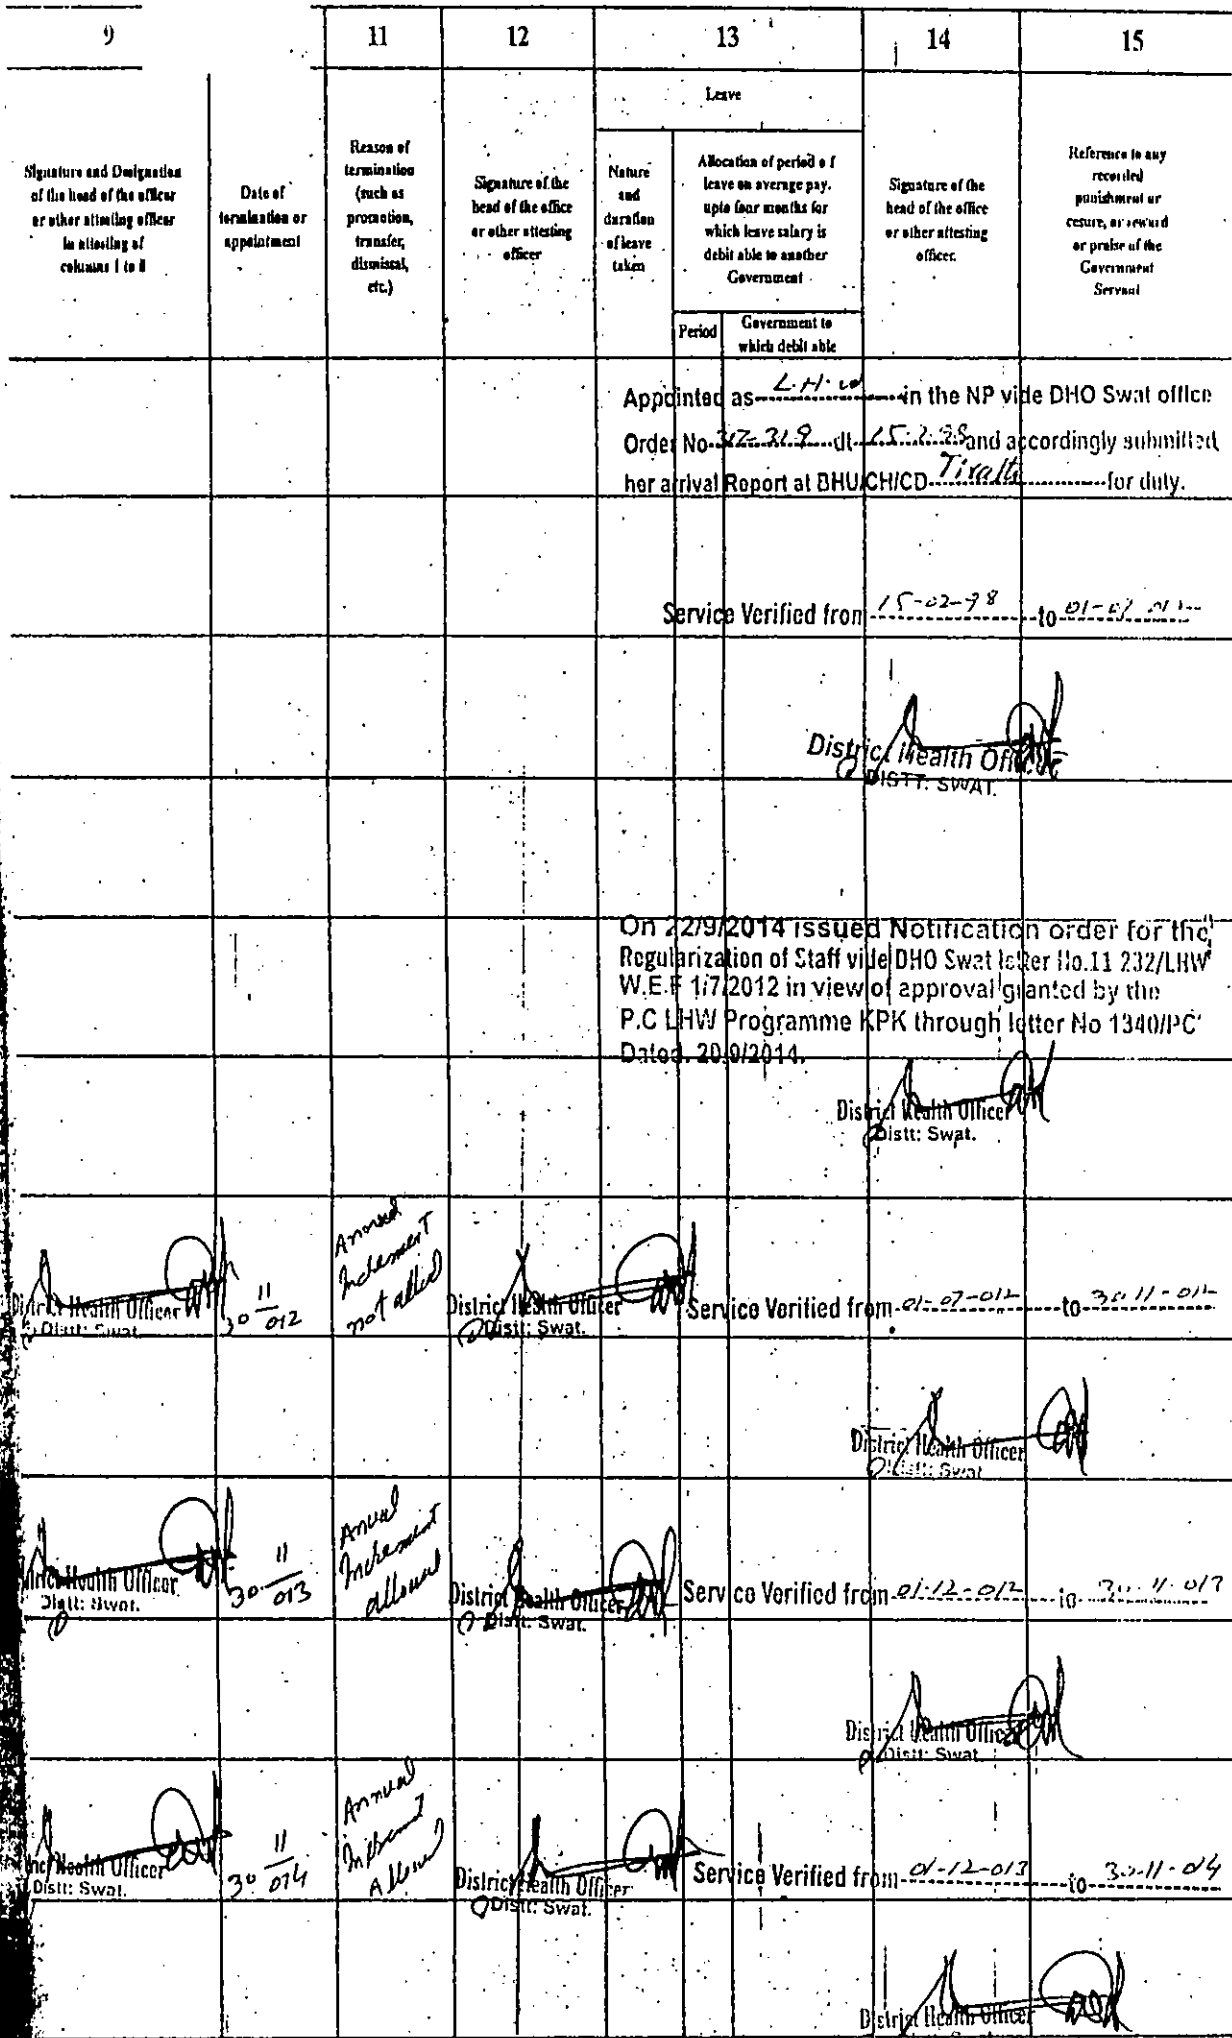 9
11
12
13
14
15
Signature and Designation
of the head of the officer
or other attesting officer
in attesting of
columns 1 to 8
Date of
termination or
appointment
Reason of
termination
(such as
promotion,
transfer,
dismissal,
etc.)
Signature of the
head of the office
or other attesting
officer
Leave
Nature
and
duration
of leave
taken
Allocation of period of
leave on average pay.
upto four months for
which leave salary is
debit able to another
Government
Period
Government to
which debit able
Signature of the
head of the office
or other attesting
officer.
Reference to any
recorded
punishment or
cesure, or reward
or praise of the
Government
Servant
Appointed as L.H.W in the NP vide DHO Swat office
Order No 317-319 dt 15.2.98 and accordingly submitted
her arrival Report at BHU/CH/CD for duty.
Service Verified from 15-02-98 to
District Health Officer
DISTT: SWAT.
On 22/9/2014 issued Notification order for the
Regularization of Staff vide DHO Swat letter No.11 232/LHW
W.E.F 1/7/2012 in view of approval granted by the
P.C LHW Programme KPK through letter No 1340/PC
Dated. 20/9/2014.
District Health Officer
Distt: Swat.
District Health Officer
Distt: Swat.
30 11/012
Annual
Increment
not allied
District Health Officer
Distt: Swat.
Service Verified from 01-07-012 to 30-11-012
District Health Officer
Distt: Swat
District Health Officer
Distt: Swat.
30 11/013
Anual
Increment
allowed
District Health Officer
Distt: Swat.
Service Verified from 01-12-012 to 30-11-013
District Health Officer
Distt: Swat.
Health Officer
Distt: Swat.
30 11/014
Annual
Increment
Allowed
District Health Officer
Distt: Swat.
Service Verified from 01-12-013 to 30-11-014
District Health Officer